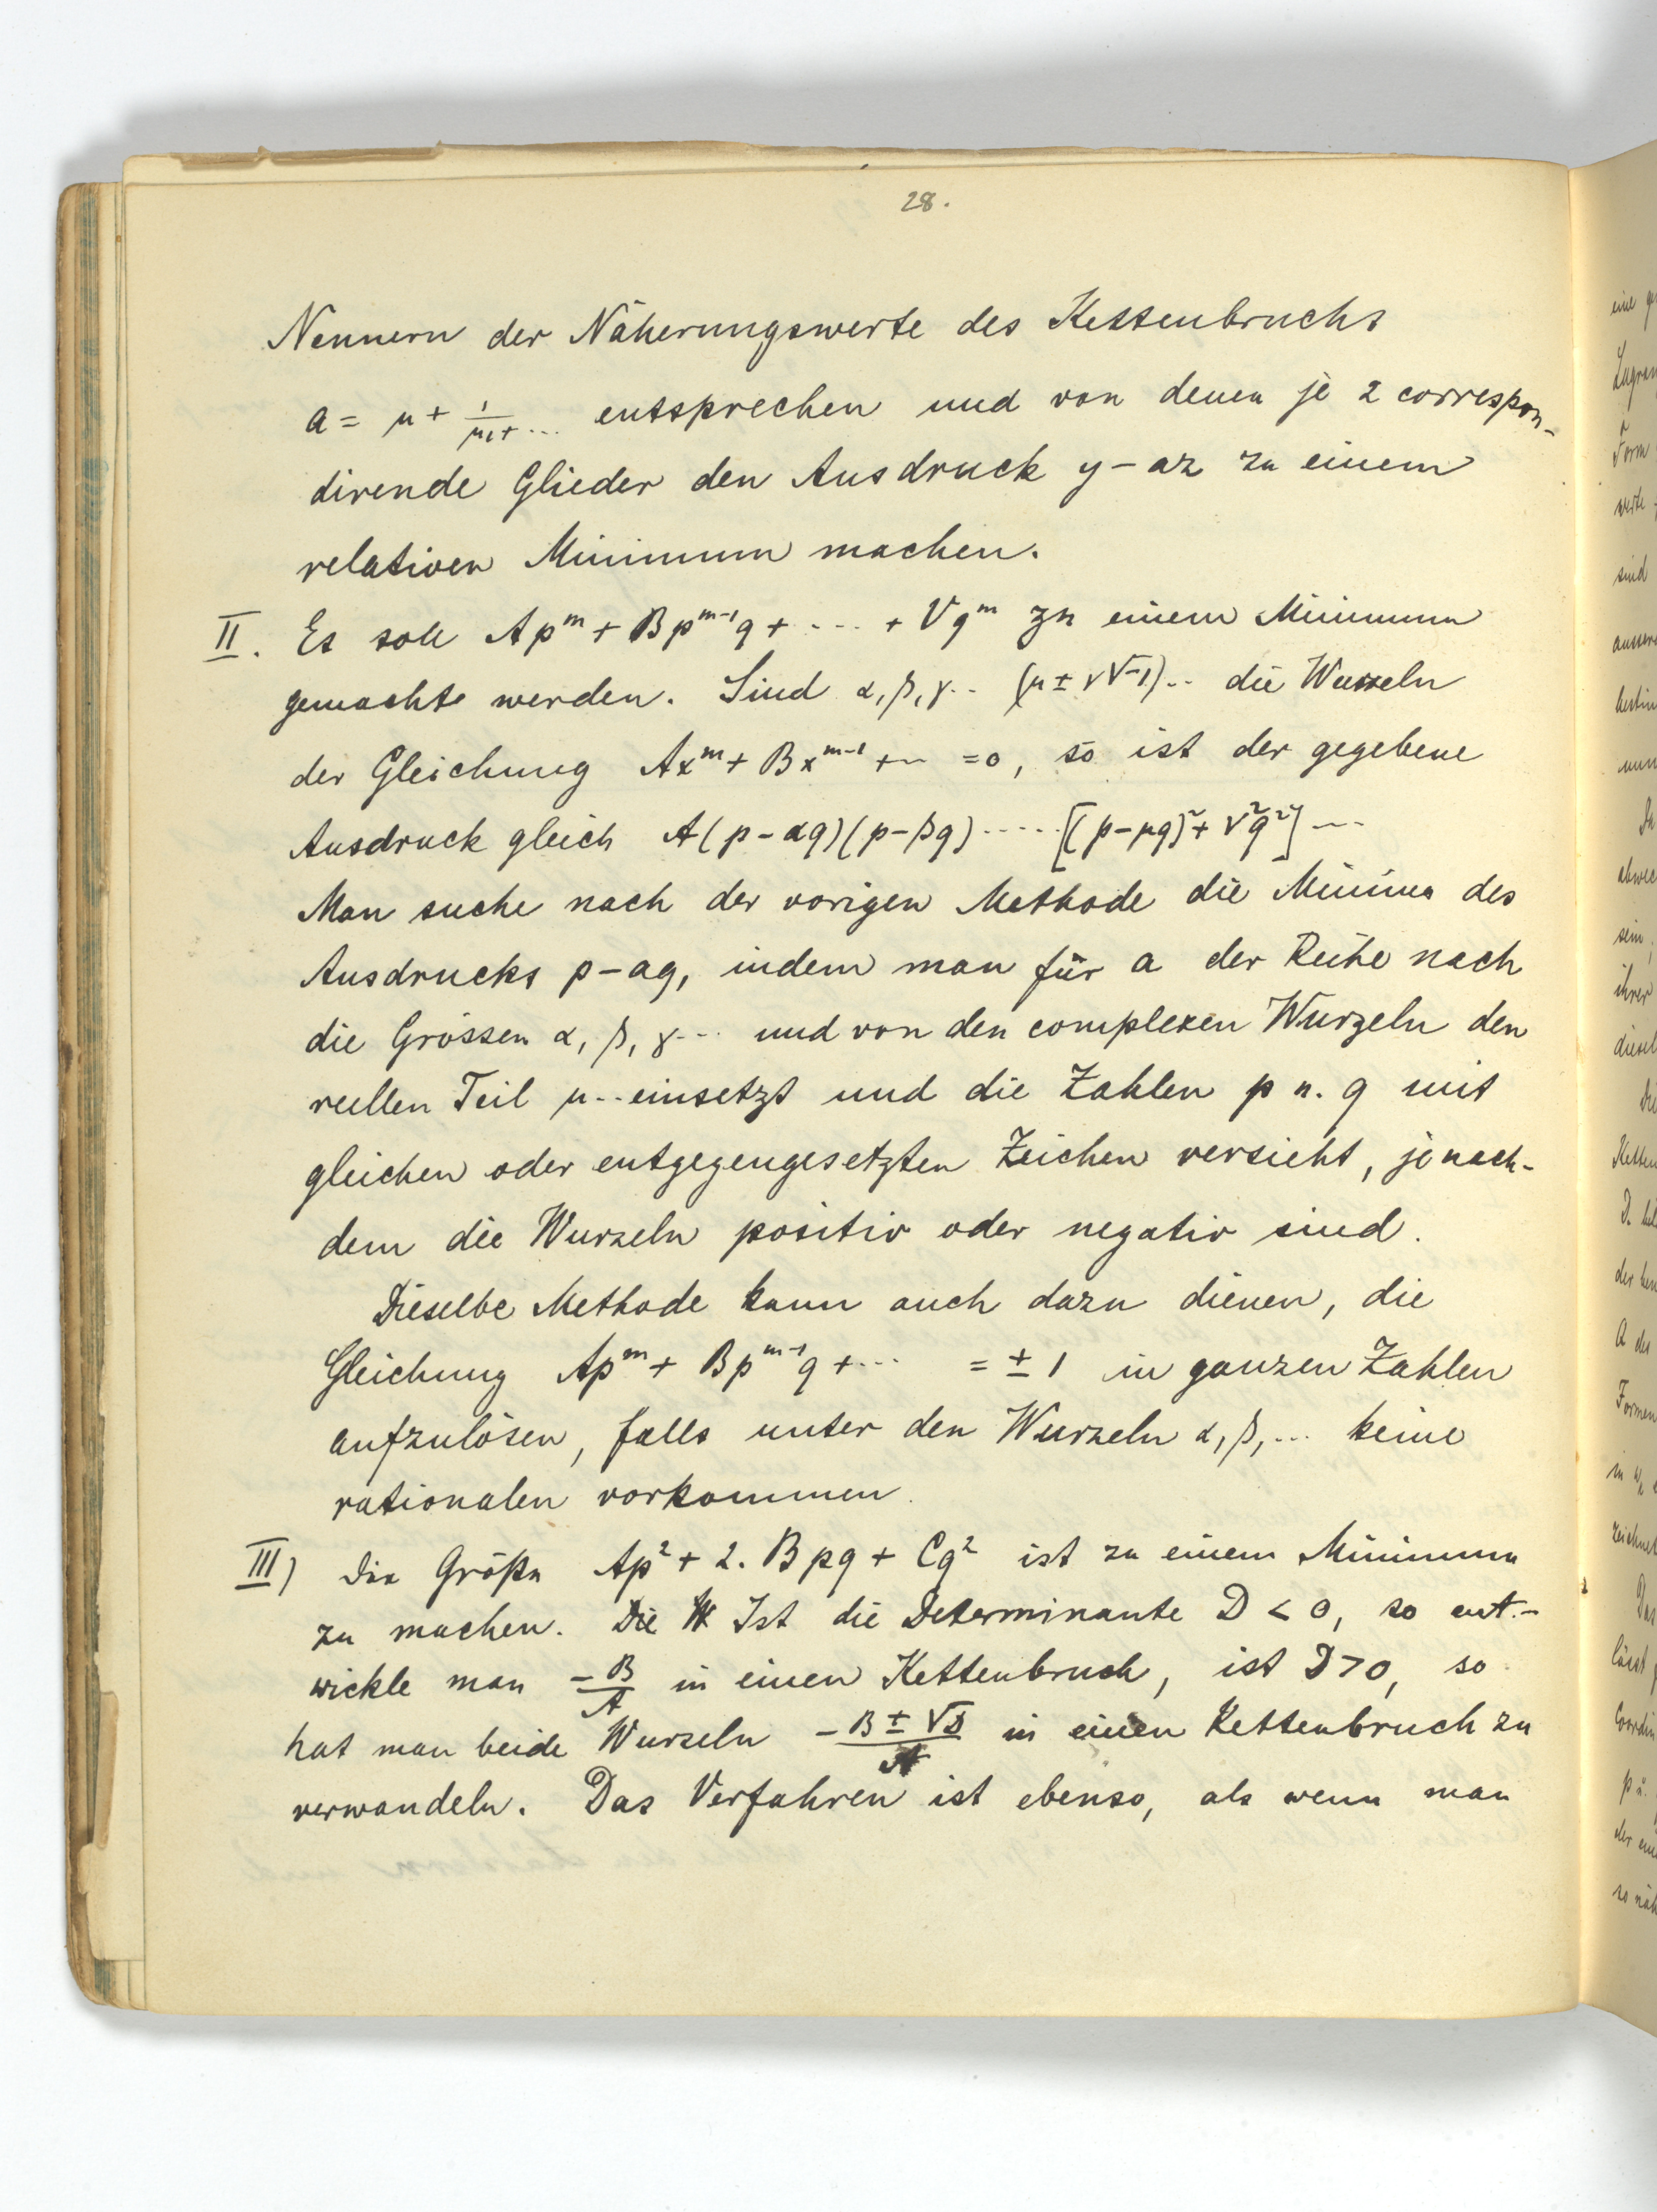 28.
Nennern der Näherungswerte des Kettenbruchs
a = μ + 1/μ₁+ ... entsprechen und von denen je 2 correspon-
dirende Glieder den Ausdruck y – az zu einem
relativen Minimum machen.
II. Es soll Ap^m + Bp^{m-1}q + ... + Vq^m zu einem Minimum
gemacht werden. Sind α, β, γ.. (μ ± ν√-1).. die Wurzeln
der Gleichung Ax^m + Bx^{m-1} + ... = 0, so ist der gegebene
Ausdruck gleich A(p – αq)(p – βq) ..... [(p – μq)² + ν²q²] ...
Man suche nach der vorigen Methode die Minima des
Ausdrucks p – aq, indem man für a der Reihe nach
die Grössen α, β, γ... und von den complexen Wurzeln den
reellen Teil μ.. einsetzt und die Zahlen p u. q mit
gleichen oder entgegengesetzten Zeichen versieht, je nach-
dem die Wurzeln positiv oder negativ sind.
Dieselbe Methode kann auch dazu dienen, die
Gleichung Ap^m + Bp^{m-1}q + ... = ± 1 in ganzen Zahlen
aufzulösen, falls unter den Wurzeln α, β, ... keine
rationalen vorkommen.
III) Die Größe Ap² + 2. Bpq + Cq² ist zu einem Minimum
zu machen. Die W Ist die Determinante D < 0, so ent-
wickle man –B/A in einen Kettenbruch, ist D > 0, so
hat man beide Wurzeln –B ± √D/A in einen Kettenbruch zu
verwandeln. Das Verfahren ist ebenso, als wenn man